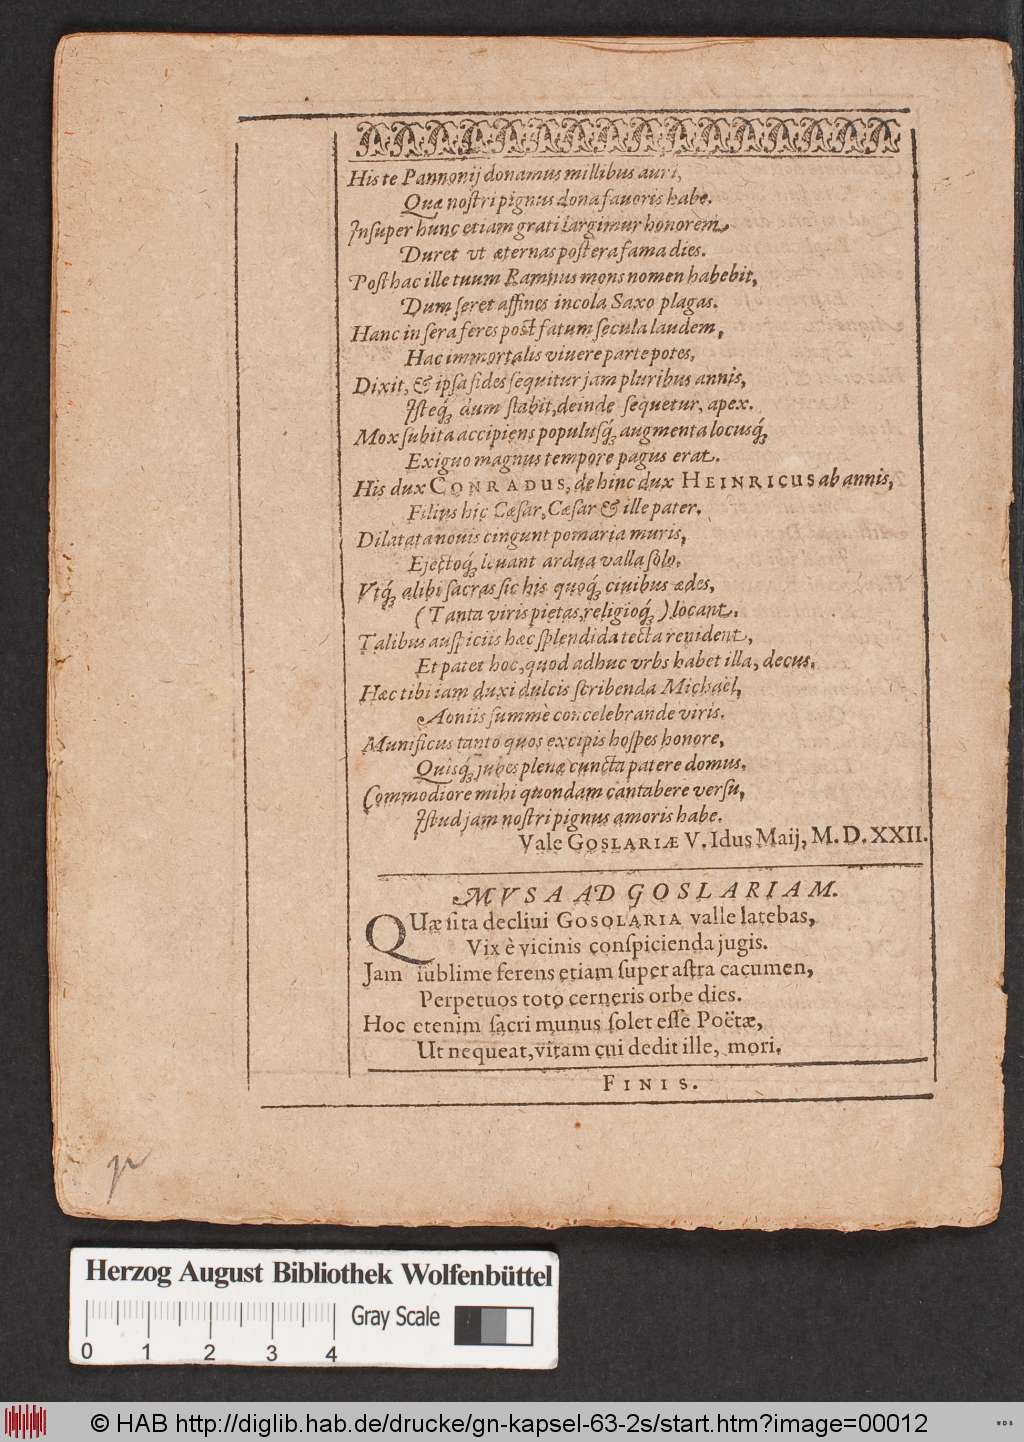 His te Pannonij donamus millibus auri,
Quæ nostri pignus dona fauoris habe.
Insuper hunc etiam grati largimur honorem,
Duret vt æternas postera fama dies.
Posthac ille tuum Ramnus mons nomen habebit,
Dum feret affines incola Saxo plagas.
Hanc in sera feres post fatum secula laudem,
Hac immortalis viuere parte potes,
Dixit, & ipsa fides sequitur jam pluribus annis,
Isteq́; dum stabit, deinde sequetur, apex.
Mox subita accipiens populusq́; augmenta locusq́;
Exiguo magnus tempore pagus erat.
His dux CONRADUS, dehinc dux HEINRICUS ab annis,
Filius hic Cæsar, Cæsar & ille pater.
Dilatata nouis cingunt pomæria muris,
Ejectoq́; leuant ardua valla solo.
Vtq́; alibi sacras sic his quoq́; ciuibus ædes,
(Tanta viris pietas, religioq́;) locant.
Talibus auspiciis hæc splendida tecta renident,
Et patet hoc, quod adhuc vrbs habet illa, decus.
Hæc tibi iam duxi dulcis scribenda Michaël,
Aoniis summè concelebrande viris.
Munificus tanto quos excipis hospes honore,
Quisq́; jubes plenæ cuncta patere domus.
Commodiore mihi quondam cantabere versu,
Istud jam nostri pignus amoris habe.
Vale GOSLARIÆ V. Idus Maij, M. D. XXII.
MVSA AD GOSLARIAM.
QUæ sita decliui GOSOLARIA valle latebas,
Vix è vicinis conspicienda jugis.
Jam sublime ferens etiam super astra cacumen,
Perpetuos toto cerneris orbe dies.
Hoc etenim sacri munus solet esse Poëtæ,
Ut nequeat, vitam cui dedit ille, mori.
FINIS.
Herzog August Bibliothek Wolfenbüttel
Gray Scale
0 1 2 3 4
© HAB http://diglib.hab.de/drucke/gn-kapsel-63-2s/start.htm?image=00012